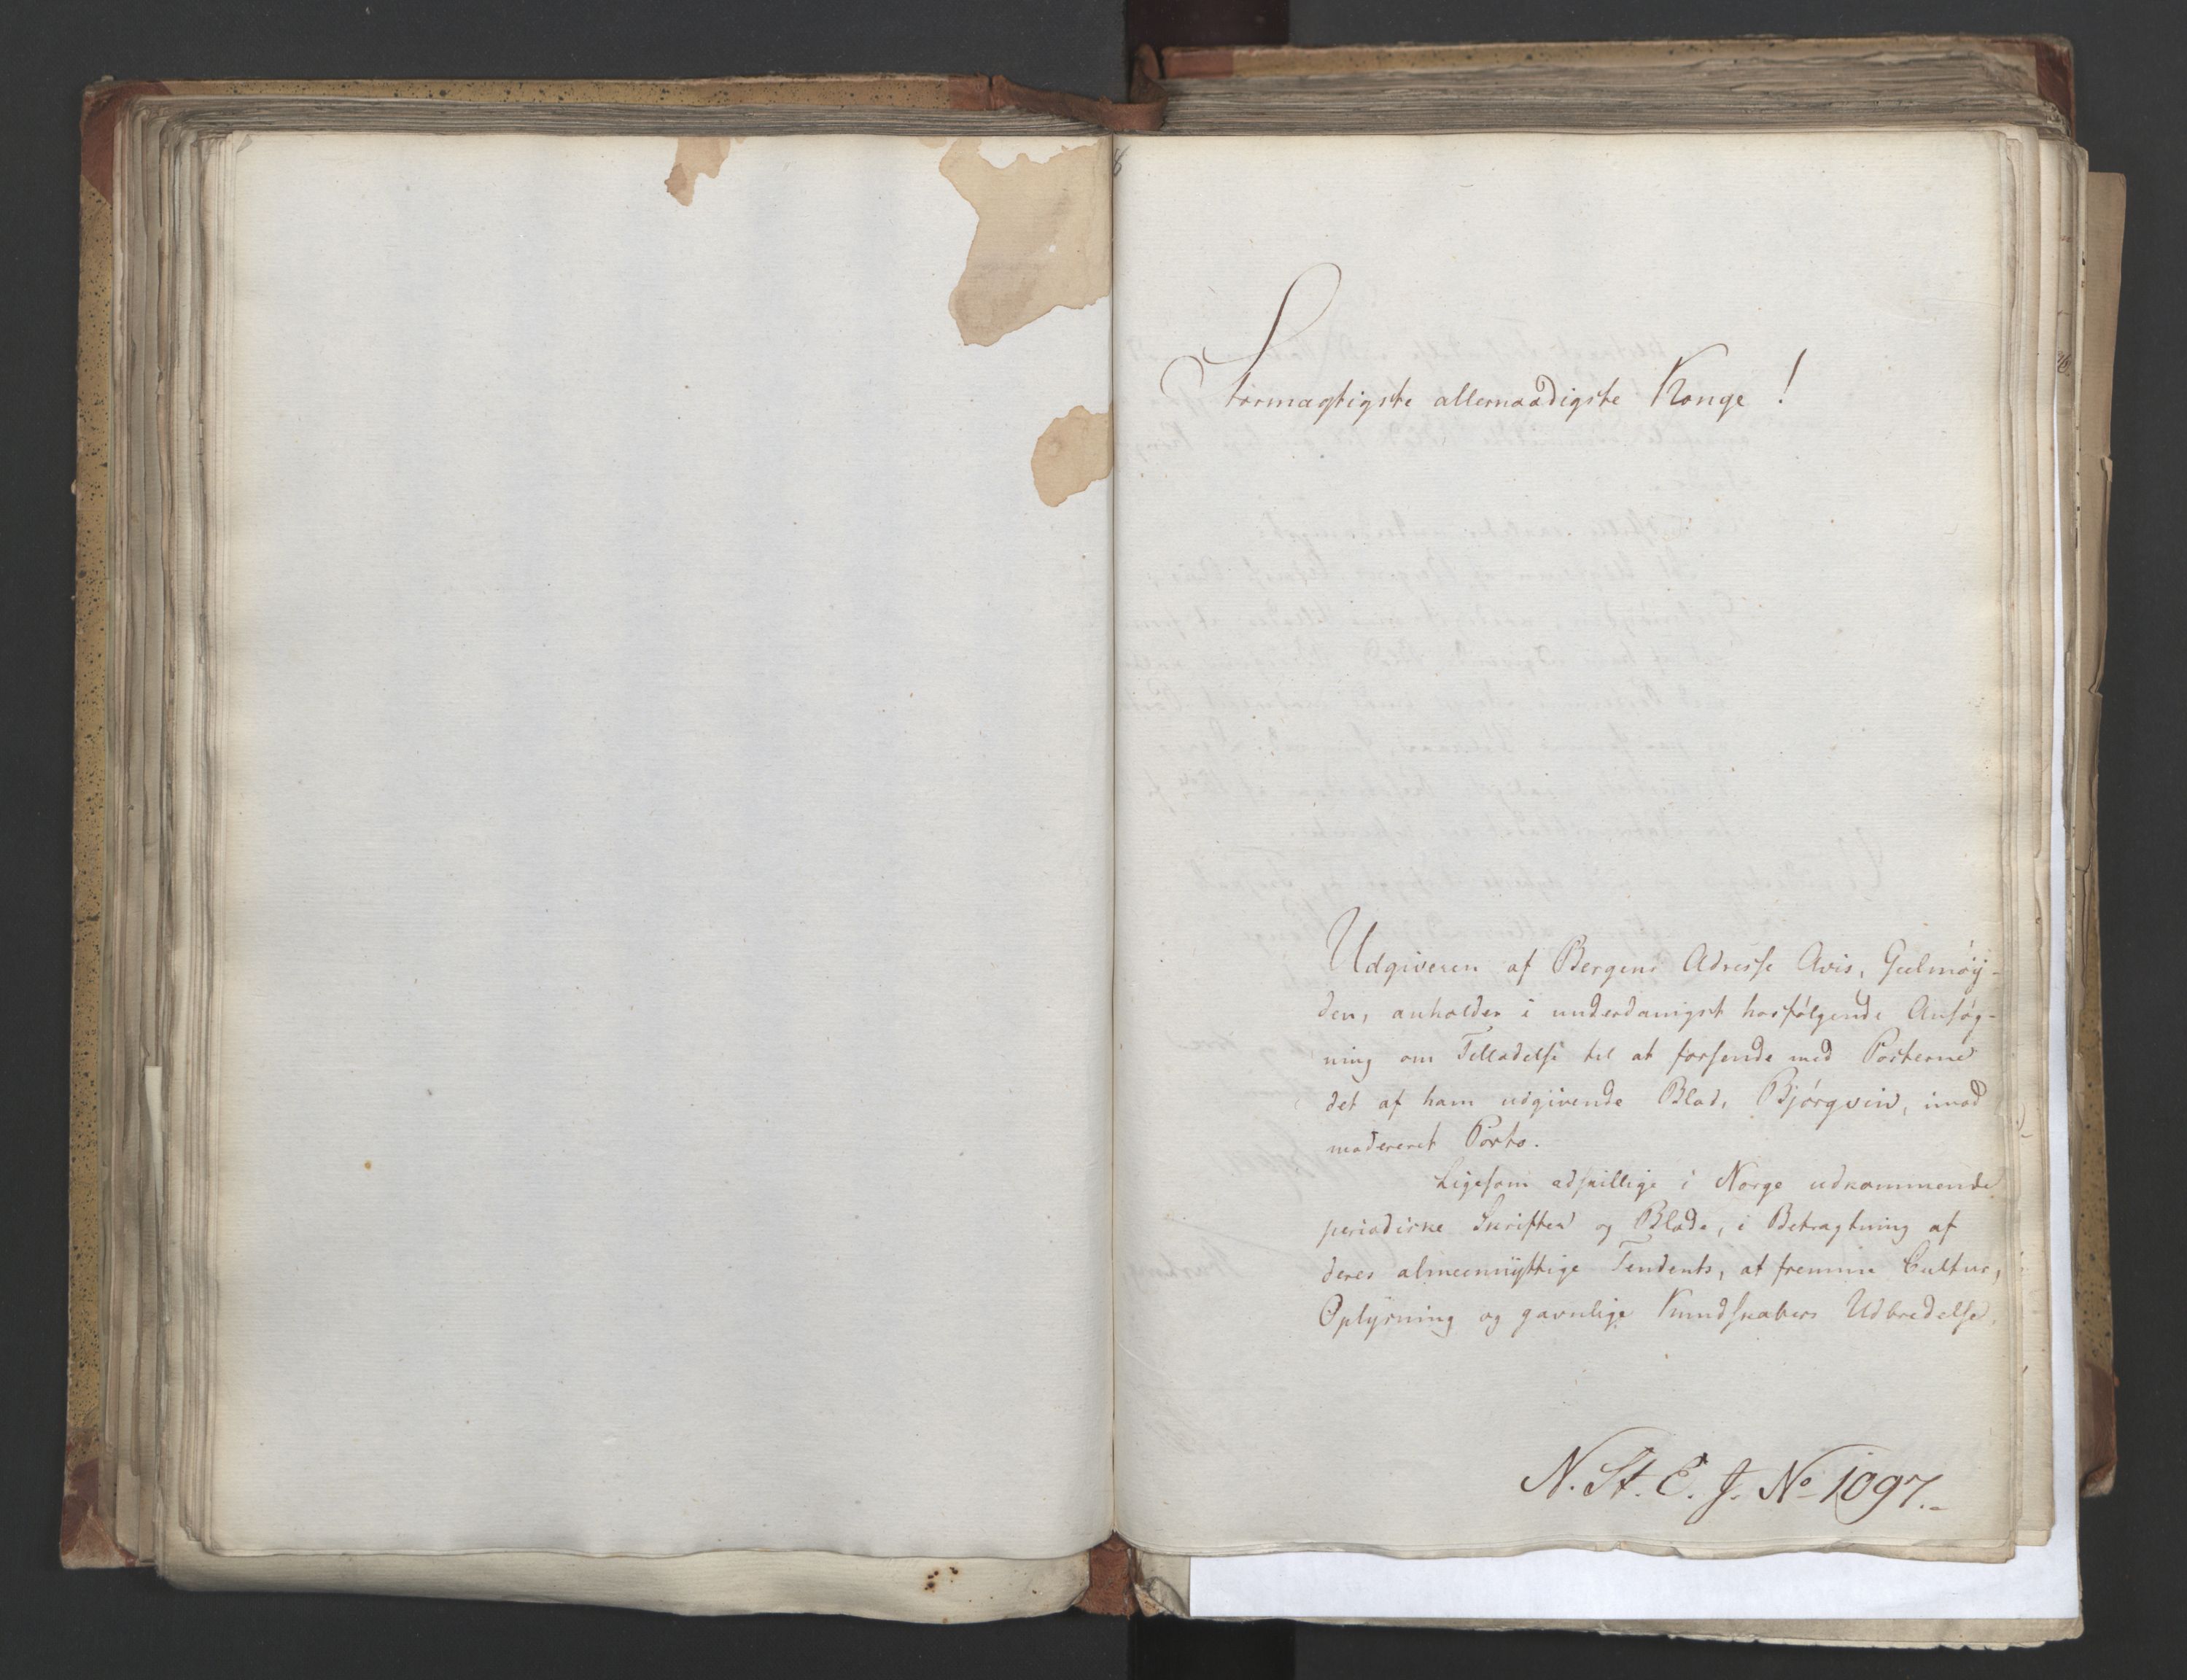 Stormægtigste allernaadigste Konge!
Udgiveren af Bergens Adresse Avis, Geelmÿy-
den, anholder i underdanigst hosfølgende Ansøg-
ning om Tilladelse til at forsende med Posterne
det af ham udgivende Blad, Bjørgvin, imod
modereret Porto.
Ligesom adskillige i Norge udkommende
periodiske Skrifter og Blade, i Betragtning af
deres almeennyttige Tendents, at fremme Cultur,
Oplysning og gavnlige Kundskabers Udbredelse,
N. St. E. J. No 1097.-